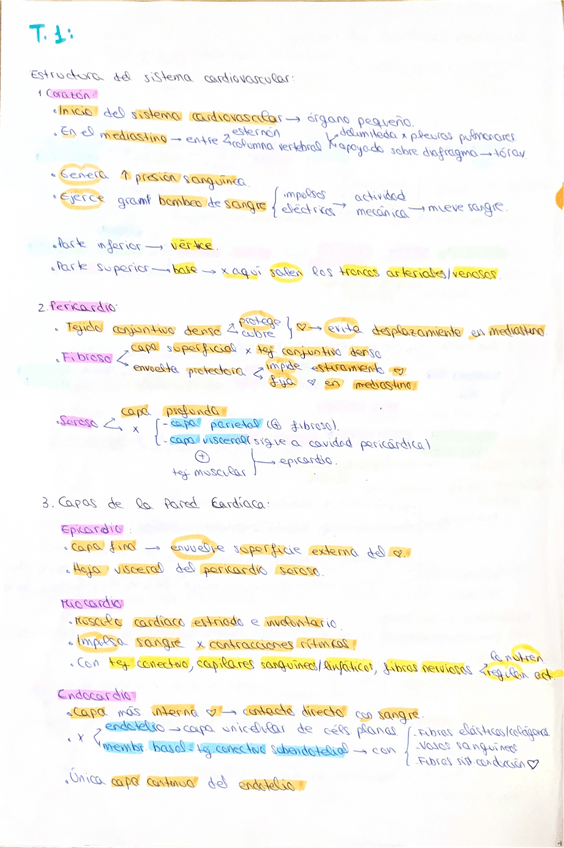 T.1:
Estructura del sistema cardiovascular:
1 Corazón
• Inicio del sistema cardiovascular → órgano pequeño.
• En el mediastino → entre 2 esternón columna vertebral delimitada x pleuras pulmonares apoyado sobre diafragma → tórax
• Genera ↑ presión sanguínea.
• Ejerce bombeo de sangre { impulsos eléctricos → actividad mecánica → mueve sangre.
• Parte inferior → vértice.
• Parte superior → base → x aquí salen los troncos arteriales/venosos
2 Pericardio:
• Tejido conjuntivo denso < protege cubre } ♡ → evita desplazamiento en mediastino
• Fibroso < capa superficial x tej conjuntivo denso
envuelta protectora < impide estiramiento ♡
fija ♡ en mediastino.
• Seroso < capa profunda
x { - capa parietal (⊕ fibroso).
- capa visceral (sigue a cavidad pericárdica)
⊕ → epicardio.
tej muscular
3. Capas de la Pared Cardíaca:
Epicardio:
• Capa fina → envuelve superficie externa del ♡.
• Hoja visceral del pericardio seroso.
Miocardio
• Músculo cardíaco estriado e involuntario.
• Impulsa sangre x contracciones rítmicas
• Con tej conectivo, capilares sanguíneos/linfáticos, fibras nerviosas < lo nutren regulan act
Endocardio
• Capa más interna ♡ → contacte directo con sangre.
• x < endotelio → capa unicelular de céls planas
membr basal - tej conectivo subendotelial → con { - Fibras elásticas/colágenas
- Vasos sanguíneos
- Fibras sist conducción ♡
• Única capa continua del endotelio